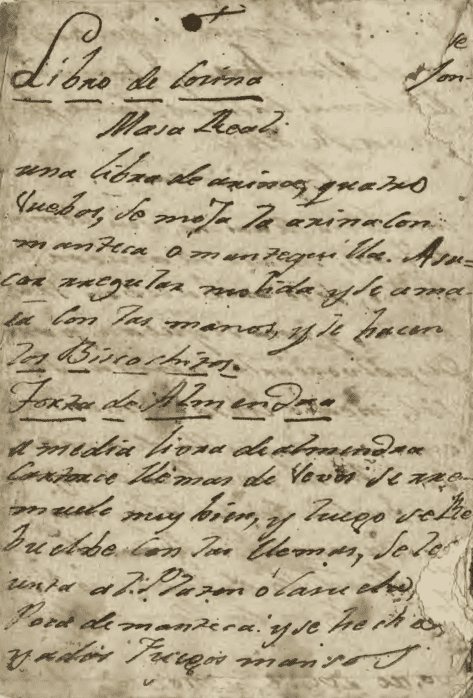 Libro de Cosina
Masa Real.
una libra de arina, quatro
huebos, se moja la arina con
manteca ó mantequilla. Asu=
car rregular molida y se ama
sa con las manos, y se hacen
los Biscochitos.
Torta de Almendra
A media livra de almendra
Catorce llemas de Vevos se rre
muele muy bien, y luego se Re
buelbe con las llemas, se le
unta al Platon ó Casuela
Poca de manteca y se hecha
ya dos Fuegos mansos